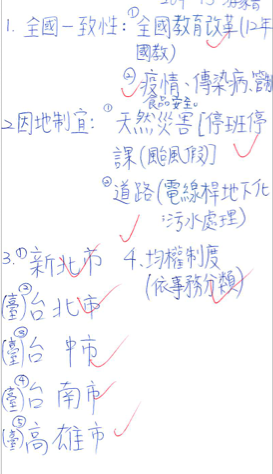 1. 全國一致性:①全國教育改革(12年
國教)
②疫情、傳染病、管制
食品安全。
2因地制宜:①天然災害[停班停
課(颱風假)]
②道路(電線桿地下化
:污水處理)
3.①新北市 4、均權制度
(依事務分類)
(臺)②台北市
(臺)③台中市
(臺)④台南市
(臺)⑤高雄市